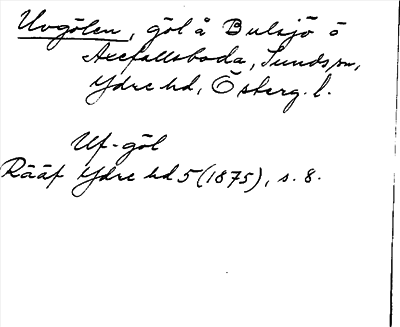 Uvgölen, göl å Bulsjö ö
Axefallsboda, Sunds sn,
Ydre hd, Österg. l.
Uf-göl
Rääf Ydre hd 5 (1875), s. 8.